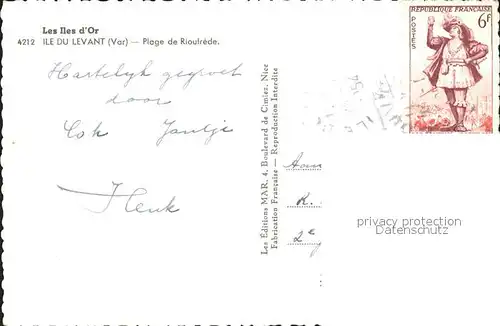 Les Iles d'Or
4212 ILE DU LEVANT (Var) — Plage de Rioufrède.
Hartelijk gegroet
door
Cok Jantje
Henk
Les Editions MAR, 4, Boulevard de Cimiez, Nice
Fabrication Française — Reproduction Interdite
REPUBLIQUE FRANÇAISE
POSTES
6F
R.
2e
privacy protection
VINTAGE-POSTCARDS.EU